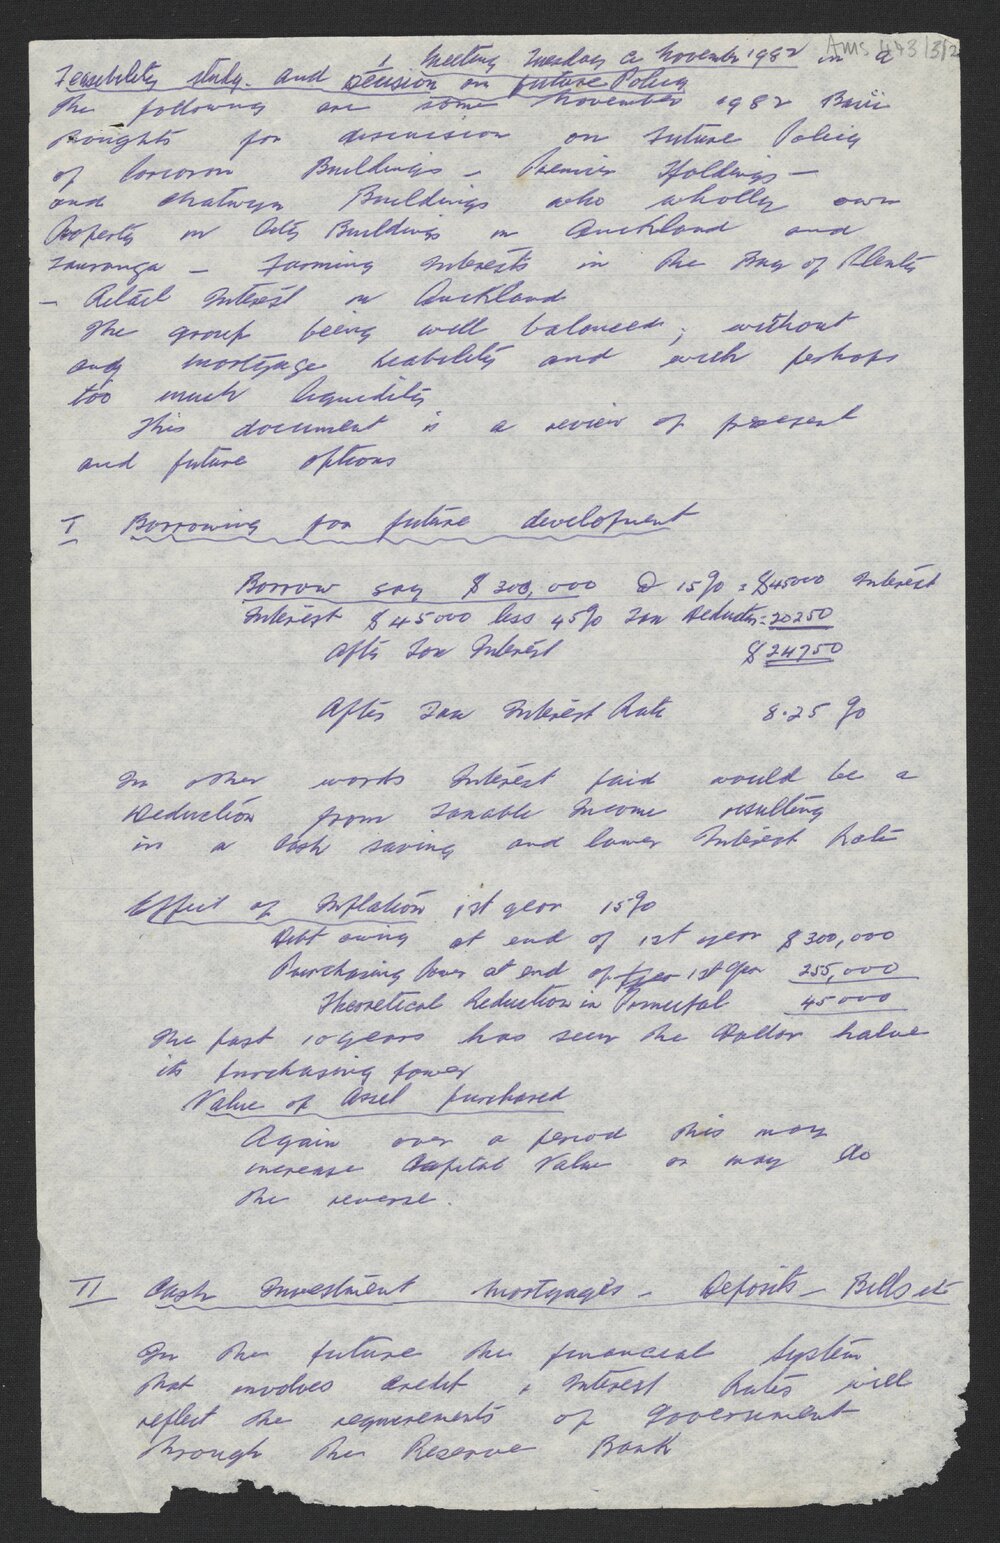 Ams 443/3/2
1 Meeting Tuesday 2 November 1982 in a
Feasibility study. and Decision on future Policy
The following are some November 1982 Basic
thoughts for discussion on Future Policy
of Corcoran Buildings - Premier Holdings -
and Chatwyn Buildings who wholly own
Property in City Buildings in Auckland and
Tauranga - Farming Interests in the Bay of Plenty
- Retail Interest in Auckland
The group being well balanced, without
any mortgage liability and with perhaps
too much liquidity
This document is a review of present
and future options
I Borrowing for future development
Borrow say $300,000 @ 15% = $45000 Interest
Interest $45000 less 45% Tax Deductn = 20250
After Tax Interest $24750
After Tax Interest Rate 8.25 %
In other words Interest paid would be a
Deduction from Taxable Income resulting
in a Cash saving and lower Interest Rate
Effect of Inflation 1st year 15%
Debt owing at end of 1st year $300,000
Purchasing Power at end of 1st year 255,000
Theoretical Reduction in Principal 45000
The past 10 years has seen the Dollar halve
its purchasing power
Value of Asset purchased
Again over a period this may
increase Capital Value or may do
the reverse.
II Cash Investment Mortgages - Deposits - Bills etc
In the future the financial System
that involves Credit & Interest Rates will
reflect the requirements of Government
through the Reserve Bank